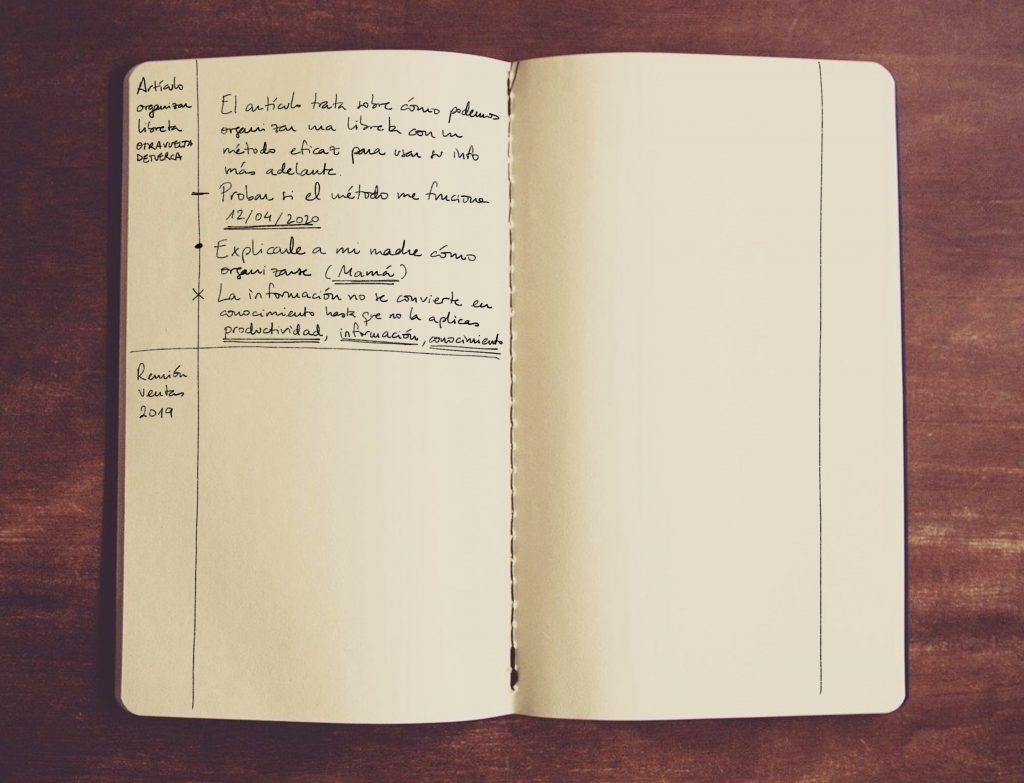 Artículo
organizar
libreta
OTRA VUELTA
DE TUERCA
El artículo trata sobre cómo podemos
organizar una libreta con un
método eficaz para usar su info
más adelante.
— Probar si el método me funciona
12/04/2020
• Explicarle a mi madre cómo
organizarse (Mamá)
× La información no se convierte en
conocimiento hasta que no la aplicas
productividad, información, conocimiento
Reunión
ventas
2019